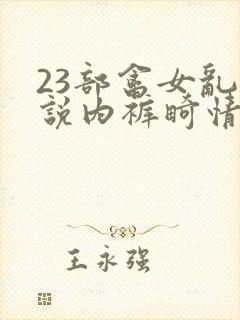 23部畜女乱
説内裤畸情
王永强